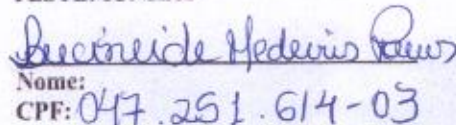 Lucineide Medeiros
Nome:
CPF: 047.251.614-03